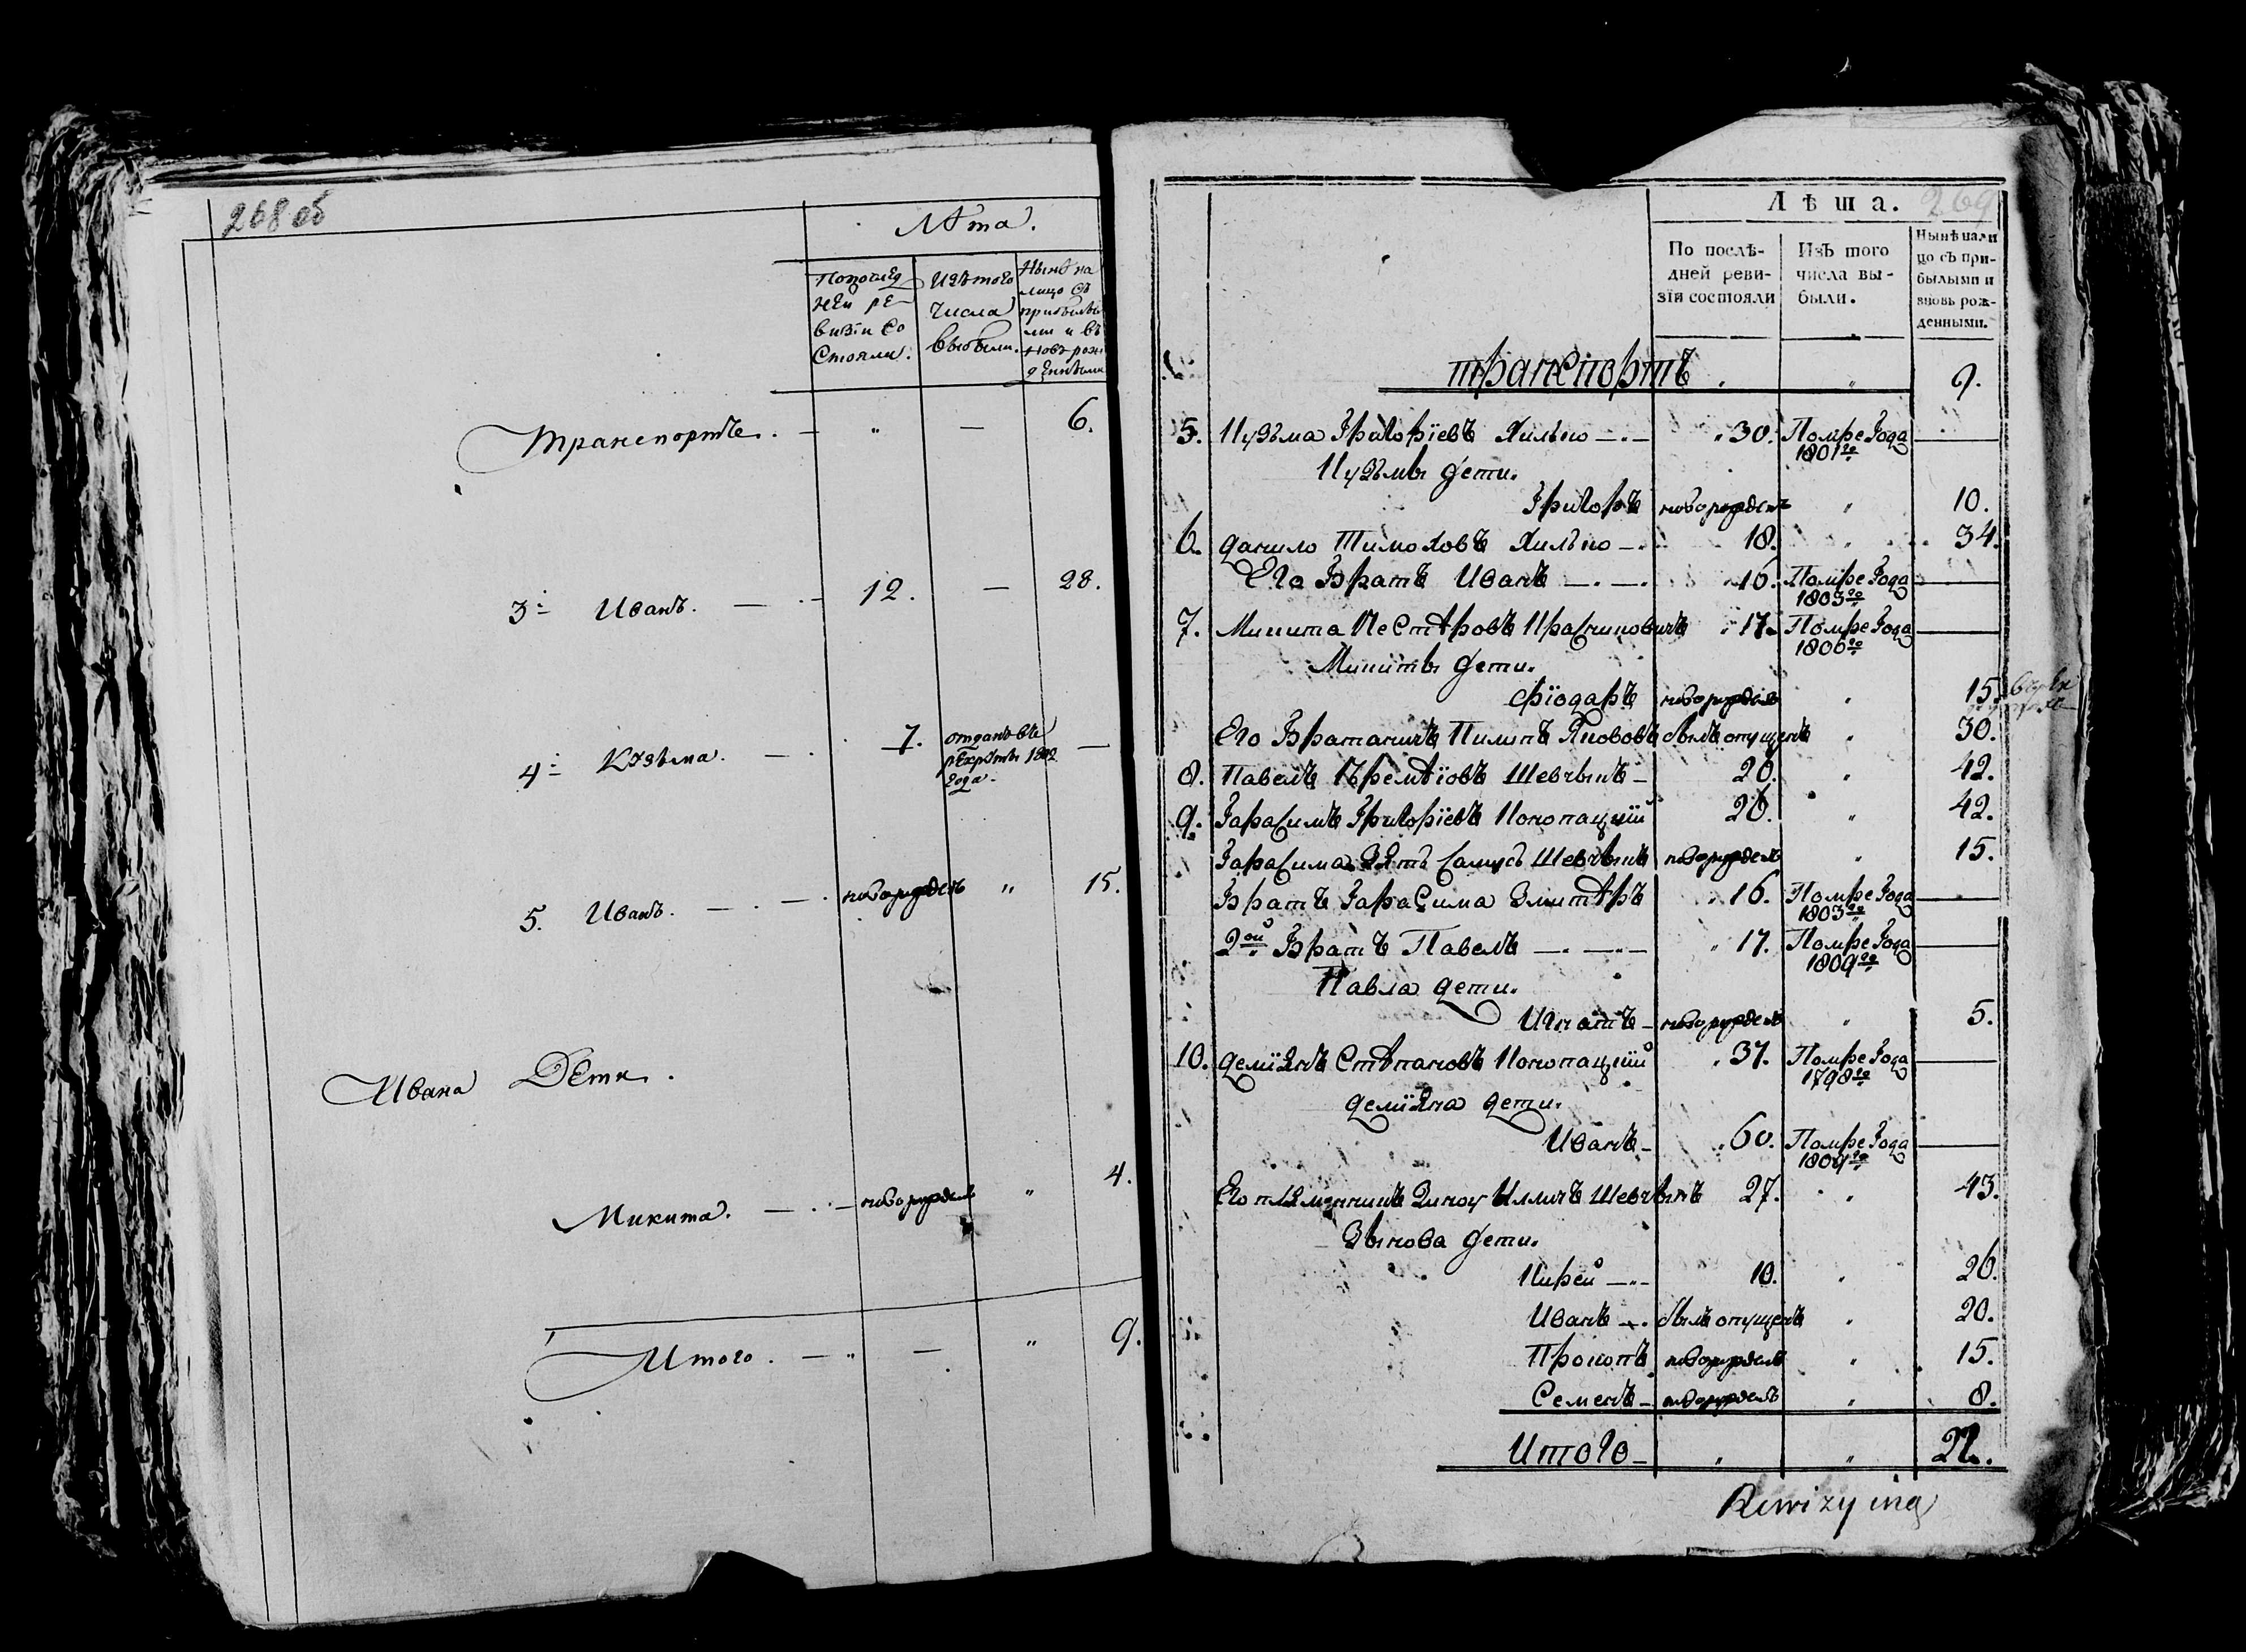 268 об
Лѣта.
По послѣд
ней ре
визіи со
стояли.
Изъ того
числа
выбыли.
Нынѣ на
лицо съ
прибылы
ми и въ
новь рож
денными
Транспортъ. — " — 6.
3й Иванъ. — 12. — 28.
4й Козьма. — 7. отданъ въ
рекруты 1802
года. —
5. Иванъ. — новорожденъ " 15.
Ивана Дети.
Микита. — новорожденъ " 4.
Итого. — " — 9.
269
Лѣта.
По послѣ-
дней реви-
зіи состояли
Изъ того
числа вы-
были.
Нынѣ нали
цо съ при-
былыми и
вновь рож-
денными.
транспортъ " " 9.
5. Кузьма Григоріевъ Хилько — 30. Помре года
1801го —
Кузьмы дети.
Григоръ новорожденъ " 10.
6. Данило Тимоховъ Хилько — 18. " 34.
Его Братъ Иванъ — 16. Помре года
1803го —
7. Микита Нестѣровъ 17. Помре года
1806го —
Микиты дети.
Фіодаръ новорожденъ " 15.
Его Братаничъ Пилипъ Яковов былъ опущенъ " 30.
8. Павелъ Шевчыкъ — 26. " 42.
9. Гарасимъ Григоріевъ Конопацкій 26. " 42.
Гарасима Зять Самусь Шевчыкъ новорожденъ " 15.
Братъ Гарасима Змитѣръ 16. Помре года
1803го —
2ой Братъ Павелъ — 17. Помре года
1809го —
Павла дети.
Игнатъ — новорожденъ " 5.
10. Деміянъ Стѣпановъ Конопацкій 37. Помре года
1798го —
Деміяна дети.
Иванъ — 60. Помре года
—
Его пляменникъ Зинов Иллич Шевчыкъ 27. " 43.
Зынова дети.
Кирей — 10. " 26.
Иванъ — былъ опущенъ " 20.
Прокопъ новорожденъ " 15.
Семенъ — новорожденъ " 8.
Итого — " " 22.